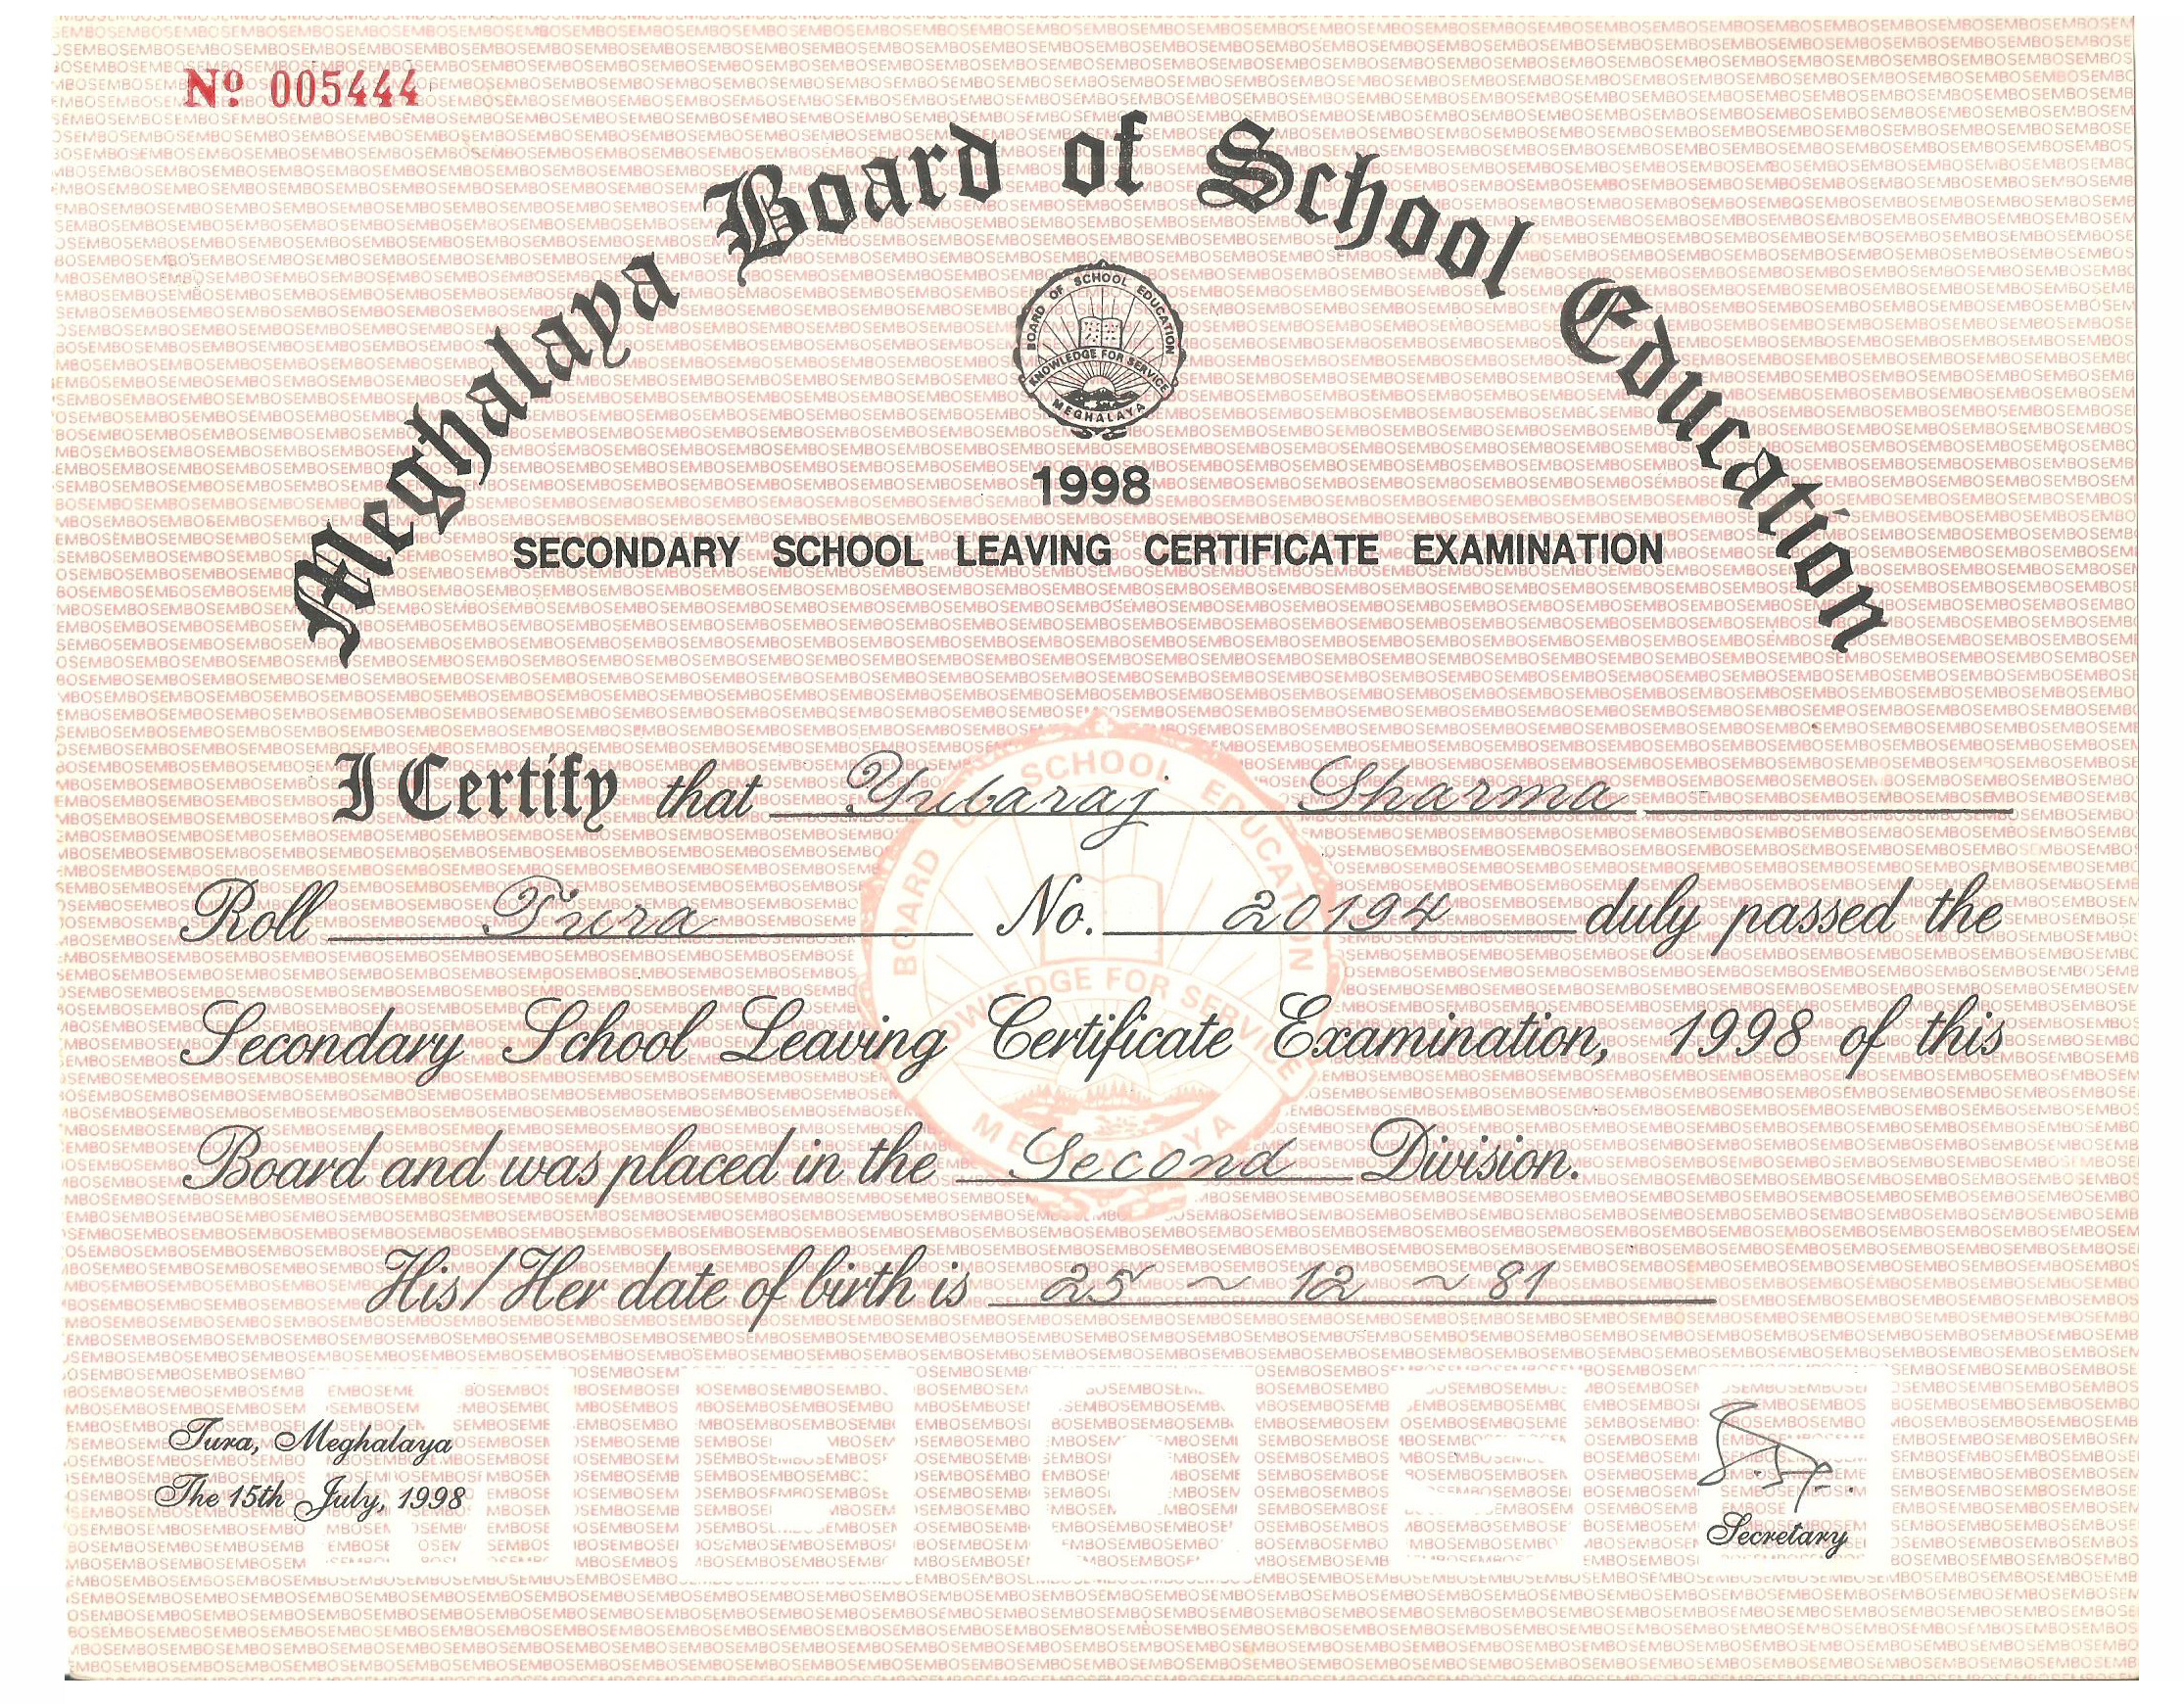 Nº 005444
Meghalaya Board of School Education
BOARD OF SCHOOL EDUCATION
KNOWLEDGE FOR SERVICE
MEGHALAYA
1998
SECONDARY SCHOOL LEAVING CERTIFICATE EXAMINATION
I Certify that Yubaraj Sharma
Roll Tura No. 20194 duly passed the
Secondary School Leaving Certificate Examination, 1998 of this
Board and was placed in the Second Division.
His / Her date of birth is 25 ~ 12 ~ 81
MBOSE
Tura, Meghalaya
The 15th July, 1998
Secretary